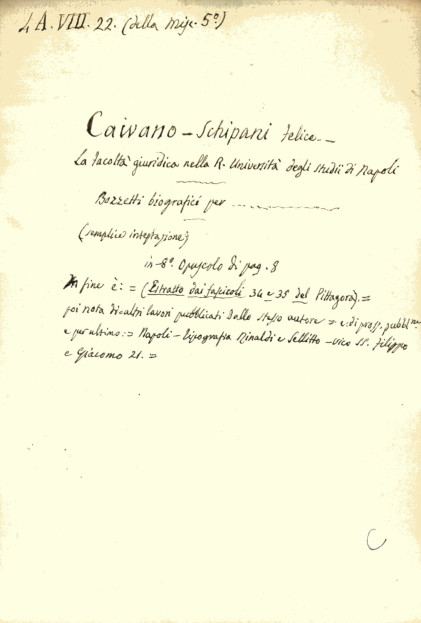 4 A. VIII. 22. (della Misc. 5ª)
Caivano - Schipani Felice. -
La facoltà giuridica nella R. Università degli studii di Napoli
Bozzetti biografici per ...............
(semplice intestazione)
in - 8º. Opuscolo di pag. 8
In fine è: = (Estratto dai fascicoli 34 e 35 del Pittagora). =
poi nota di altri lavori pubblicati dallo stesso autore = e: di pross. pubbl.ne
e per ultimo: = Napoli - Tipografia Rinaldi e Sellitto - vico SS. Filippo
e Giacomo 21. =
C